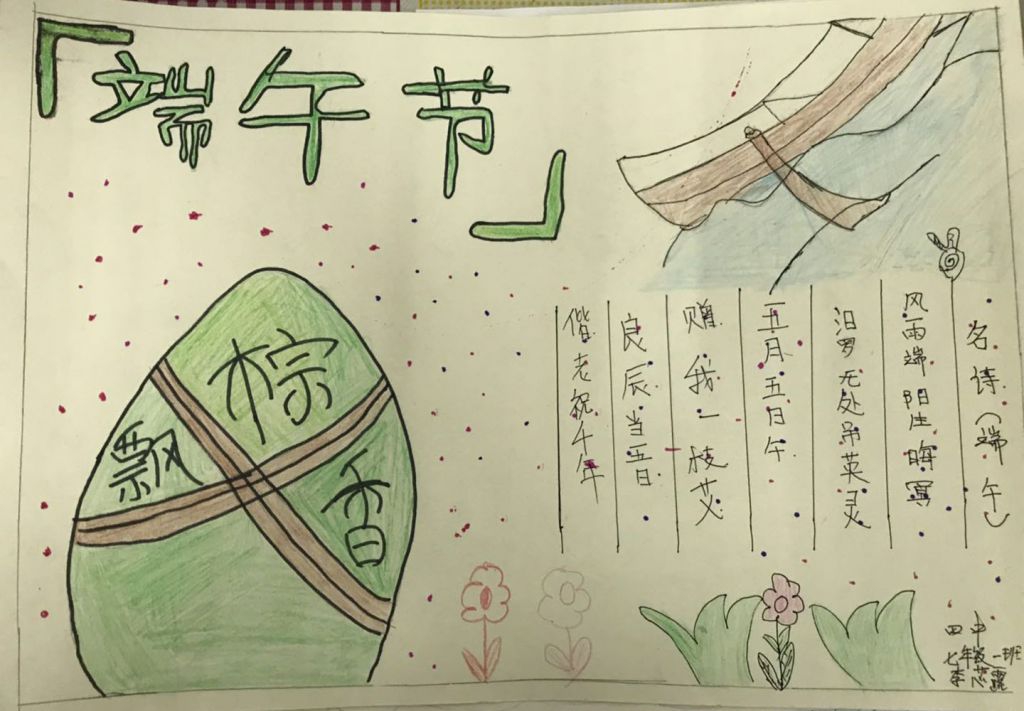 「端午节」
粽
飘
香
名诗（端午）
风雨端阳生晦冥
汨罗无处吊英灵
五月五日午
赠我一枝艾
良辰当五日
偕老祝千年
四中
七年级一班